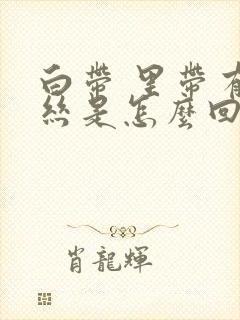 白帶里帶有
絲是怎麼回
肖龍輝